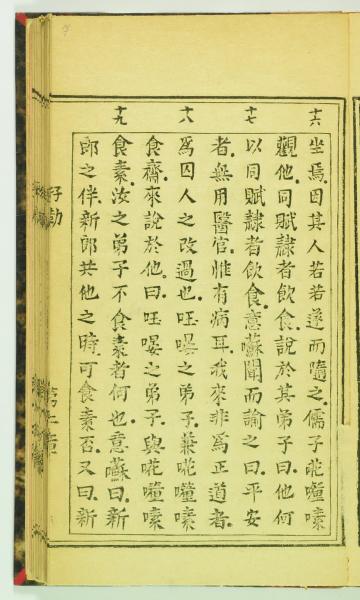 十六
坐焉。因其人若若遂而隨之。儒子
觀他同賦隸者飲食。說於其弟子曰。他何
十七
以同賦隸者飲食。意蘇聞而諭之曰。平安
者。無用醫官。惟有病耳。我來非爲正道者。
十八
爲囚人之改過也。之弟子。兼
食齋。來說於他。曰。之弟子。與
十九
食素。汝之弟子不食素者何也。意囌曰。新
郎之伴。新郎共他之時。可食素否。又曰。新
第二章